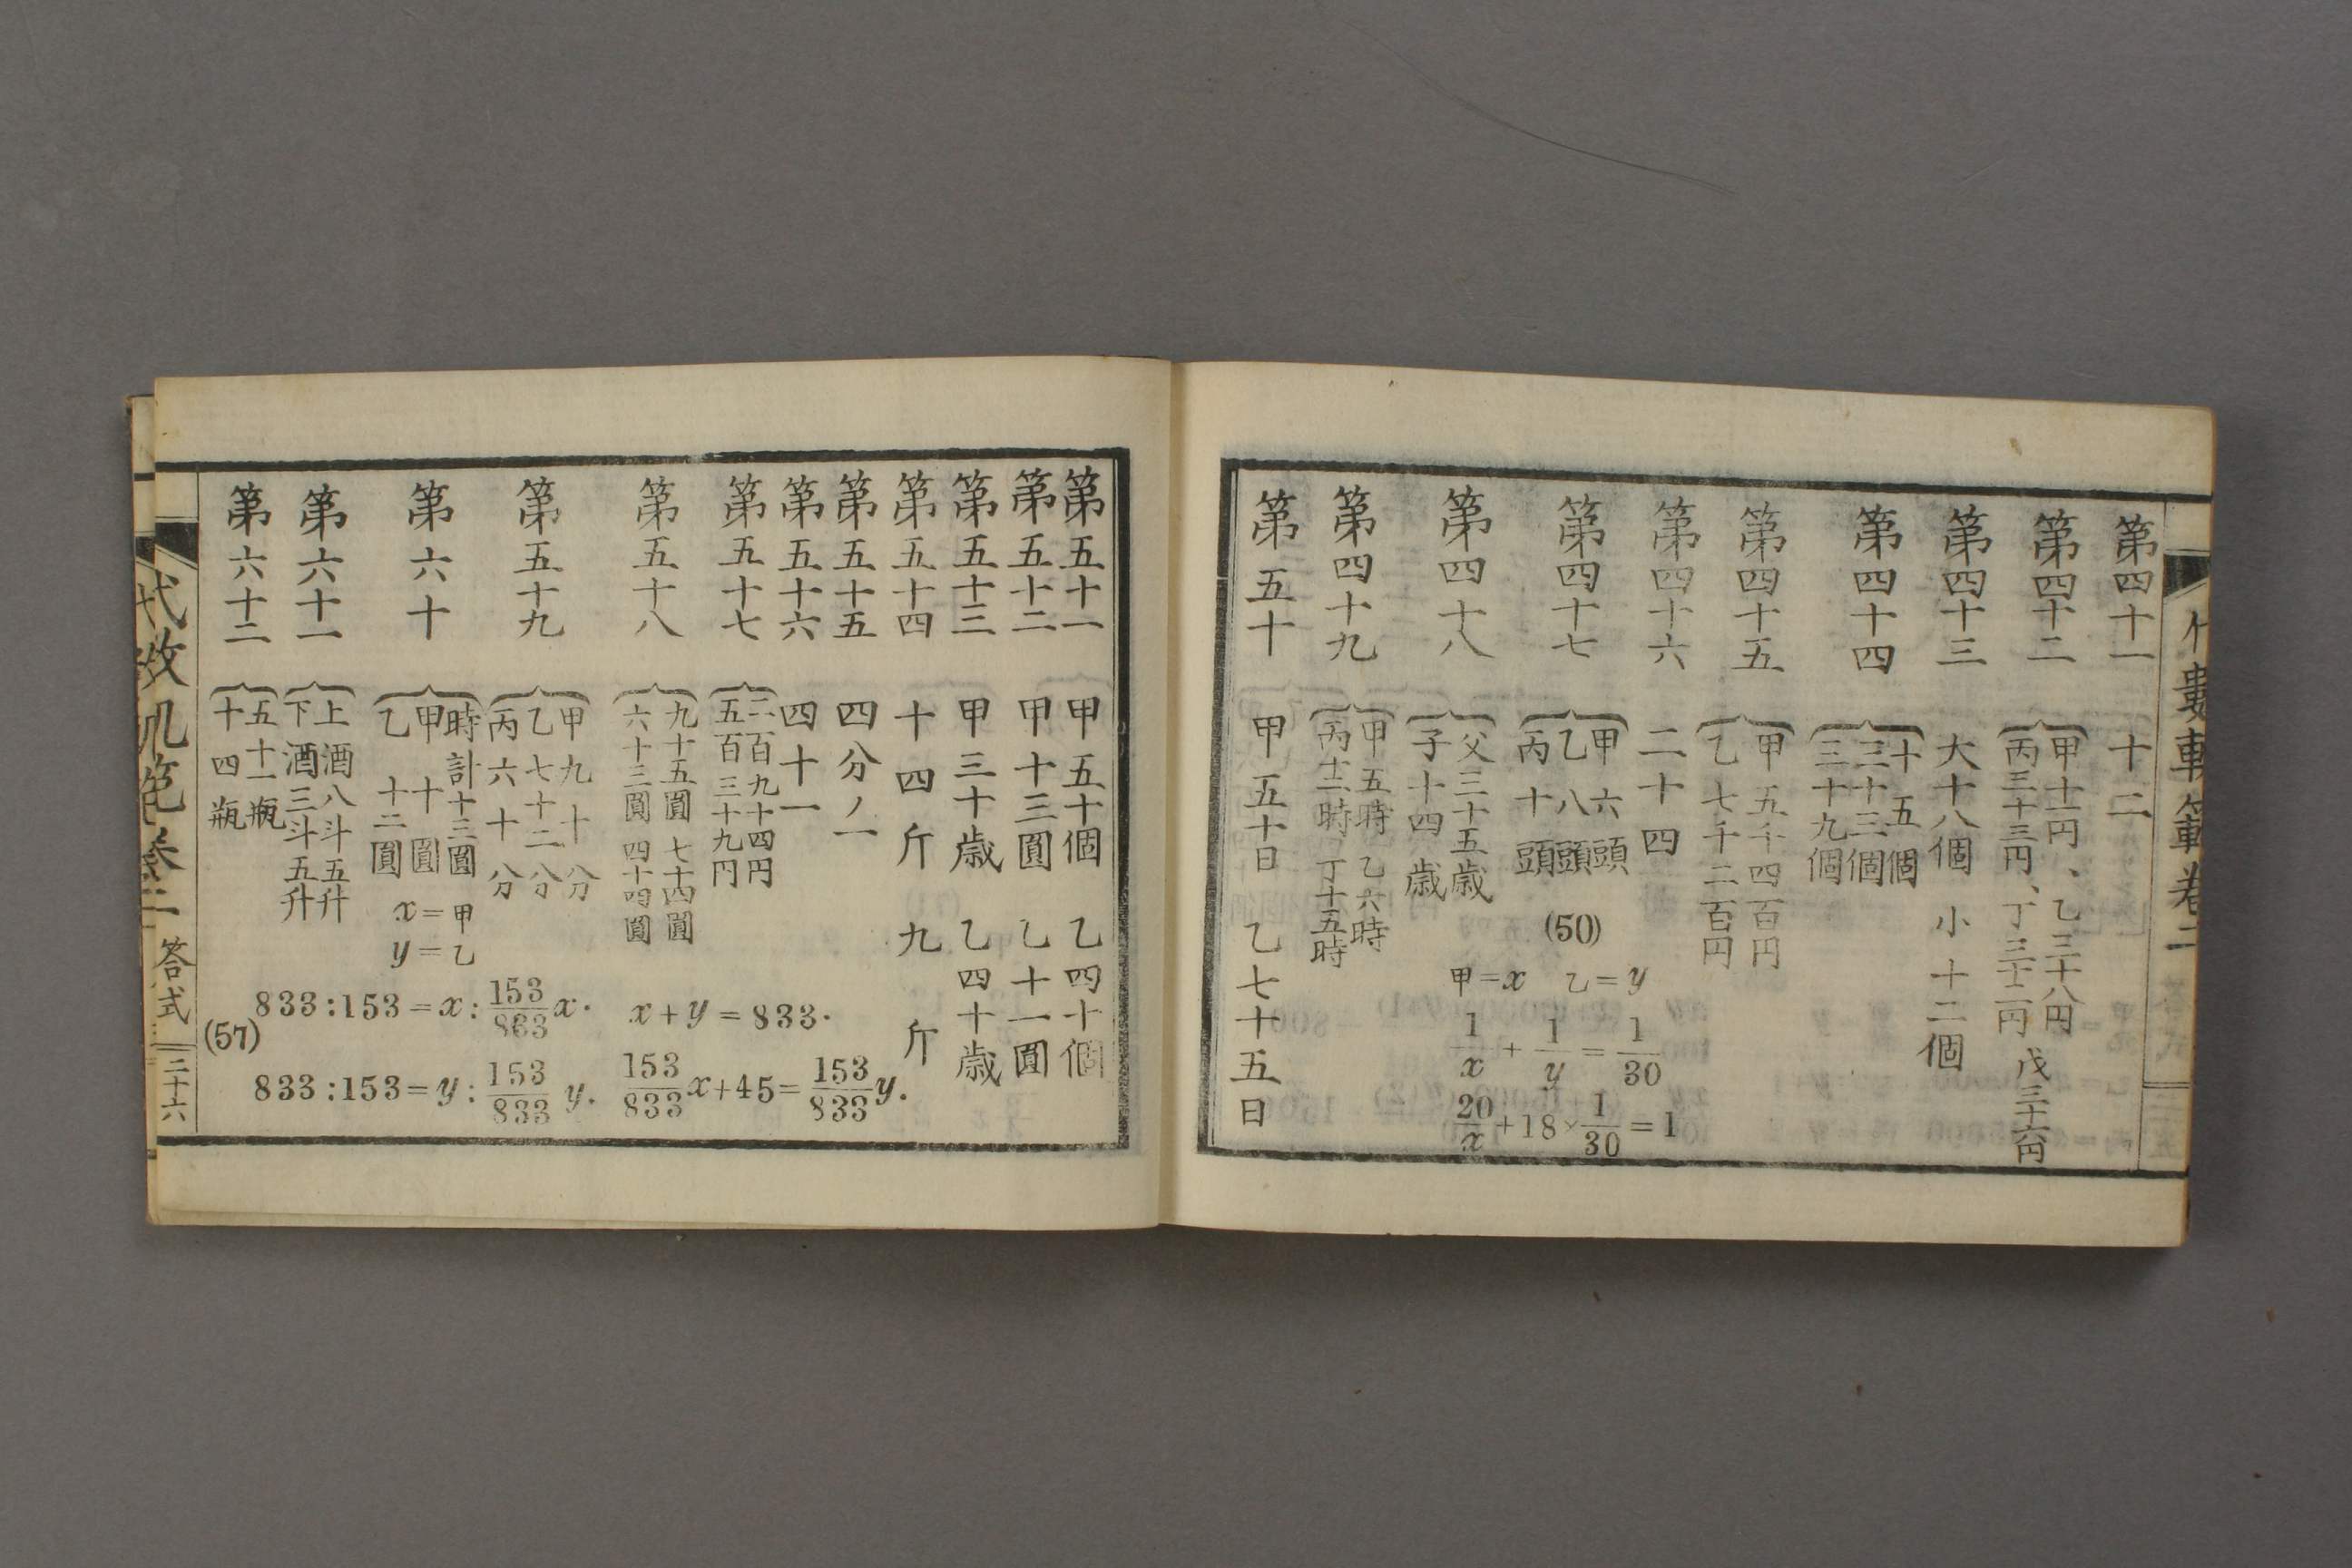 第四十一 十二
第四十二 甲十一円、乙三十八円
丙三十三円、丁三十二円 戊三十六円
第四十三 大十八個 小十二個
第四十四 十五個
三十三個
三十九個
第四十五 甲五千四百円
乙七千二百円
第四十六 二十四
第四十七 甲六頭
乙八頭
丙十頭
第四十八 父三十五歳
子十四歳
第四十九 甲五時 乙六時
丙十二時 丁十五時
第五十 甲五十日 乙七十五日
(50)
甲=x 乙=y
1/x + 1/y = 1/30
20/x + 18 × 1/30 = 1
第五十一 甲五十個 乙四十個
第五十二 甲十三圓 乙十一圓
第五十三 甲三十歳 乙四十歳
第五十四 十四斤 九斤
第五十五 四分ノ一
第五十六 四十一
第五十七 二百九十四円
五百三十九円
第五十八 九十五圓 七十四圓
六十三圓 四十四圓
第五十九 甲九十分
乙七十二分
丙六十分
第六十 時計十三圓
甲十圓
乙十二圓
第六十一 上酒八斗五升
下酒三斗五升
第六十二 五十一瓶
十四瓶
(57)
x=甲
y=乙
833:153=x:153/863 x. x+y=833.
833:153=y:153/833 y. 153/833 x+45=153/833 y.
答式
二十六